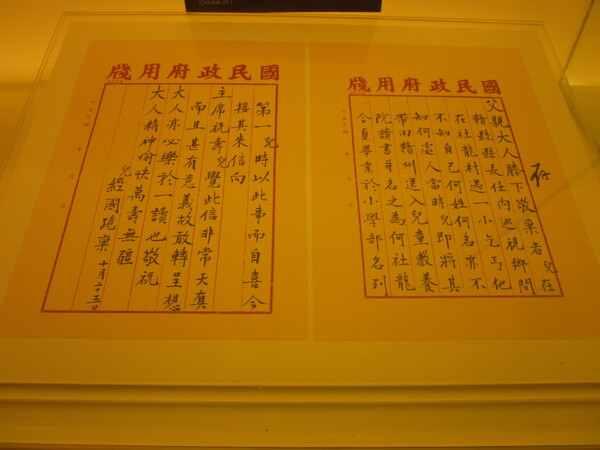 國民政府用牋
存
父親大人膝下敬稟者 兒在
贛縣縣長任內巡視鄉間
在社龍村遇一小乞丐他
不知自己何姓何名亦不
知何處人當時兒即將其
帶回贛州送入兒童教養
院讀書并名之為何社龍
今夏畢業於小學部名列
國民政府用牋
第一兒時以此事而自喜今
接其來信向
主席祝壽兒覺此信非常天真
而且甚有意義故敢轉呈想
大人亦必樂於一讀也敬祝
大人精神愉快萬壽無疆
兒經國跪稟 十月二十五日